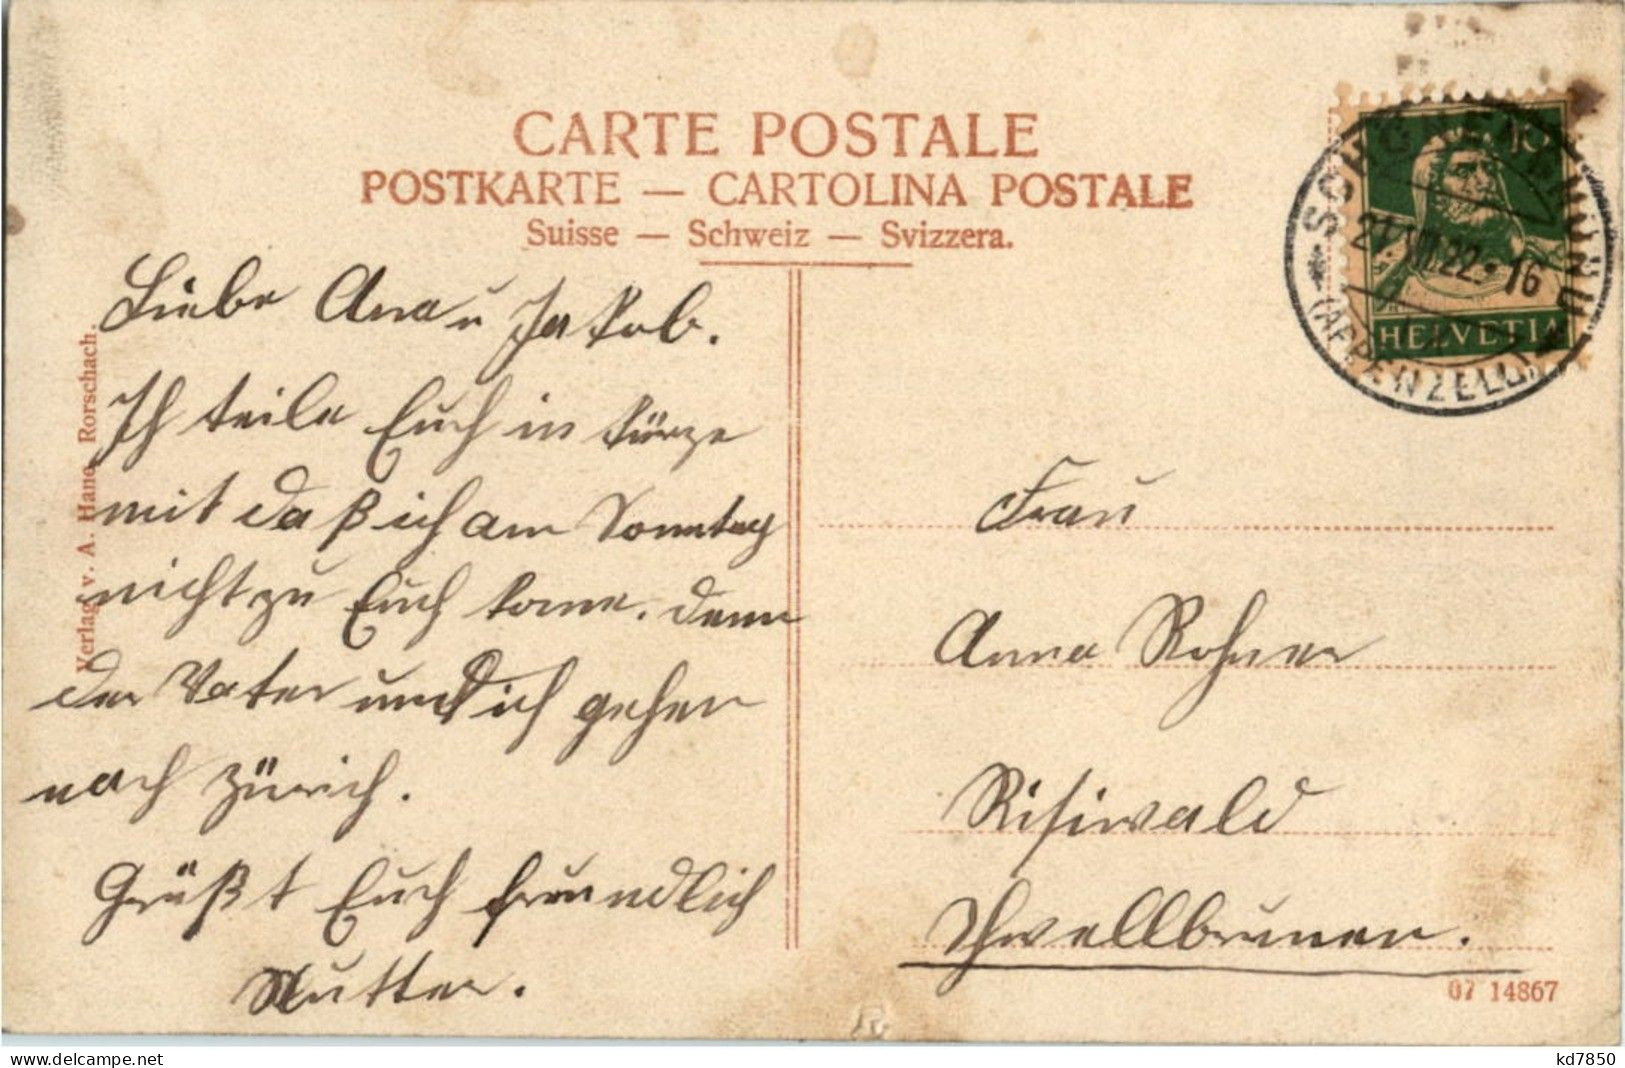 CARTE POSTALE
POSTKARTE — CARTOLINA POSTALE
Suisse — Schweiz — Svizzera.
HELVETIA
10
21.VII.22.-16
(APPENZELL)
Verlag v. A. Hane, Rorschach.
Liebe Anna u Jakob.
Ich teile Euch in kürze
mit daß ich am Sonntag
nicht zu Euch kome. denn
der Vater und ich gehen
nach Zürich.
Grüßt Euch freundlich
Mutter.
Frau
Anna Rohner
Risiwald
Schwellbrunnen.
07 14867
kd7850